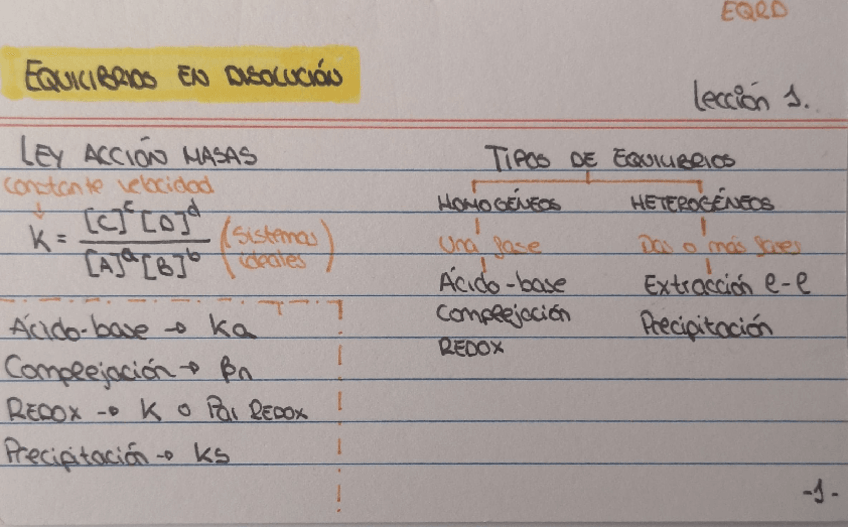 EQRD
EQUILIBRIOS EN DISOLUCIÓN
Lección 1.
LEY ACCIÓN MASAS
constante velocidad
K = [C]^c [D]^d / [A]^a [B]^b (Sistemas ideales)
Ácido-base → Ka
Complejación → βn
REDOX → K o Par REDOX
Precipitación → Ks
TIPOS DE EQUILIBRIOS
HOMOGÉNEOS
Una fase
Ácido-base
Complejación
REDOX
HETEROGÉNEOS
Dos o más fases
Extracción l-l
Precipitación
-1-